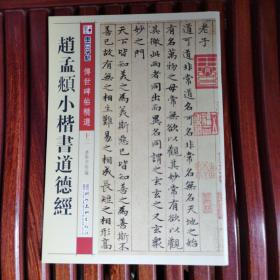 老子
道可道非常道名可名非常名無名天地之
始有名萬物之母常無欲以觀其妙常有欲以觀
其徼此兩者同出而異名同謂之玄玄之又玄衆
妙之門
天下皆知美之為美斯惡已皆知善之為善斯不
善已故有無之相生難易之相成長短之相形高
墨点字帖
傳世碑帖精選
趙孟頫小楷書道德經